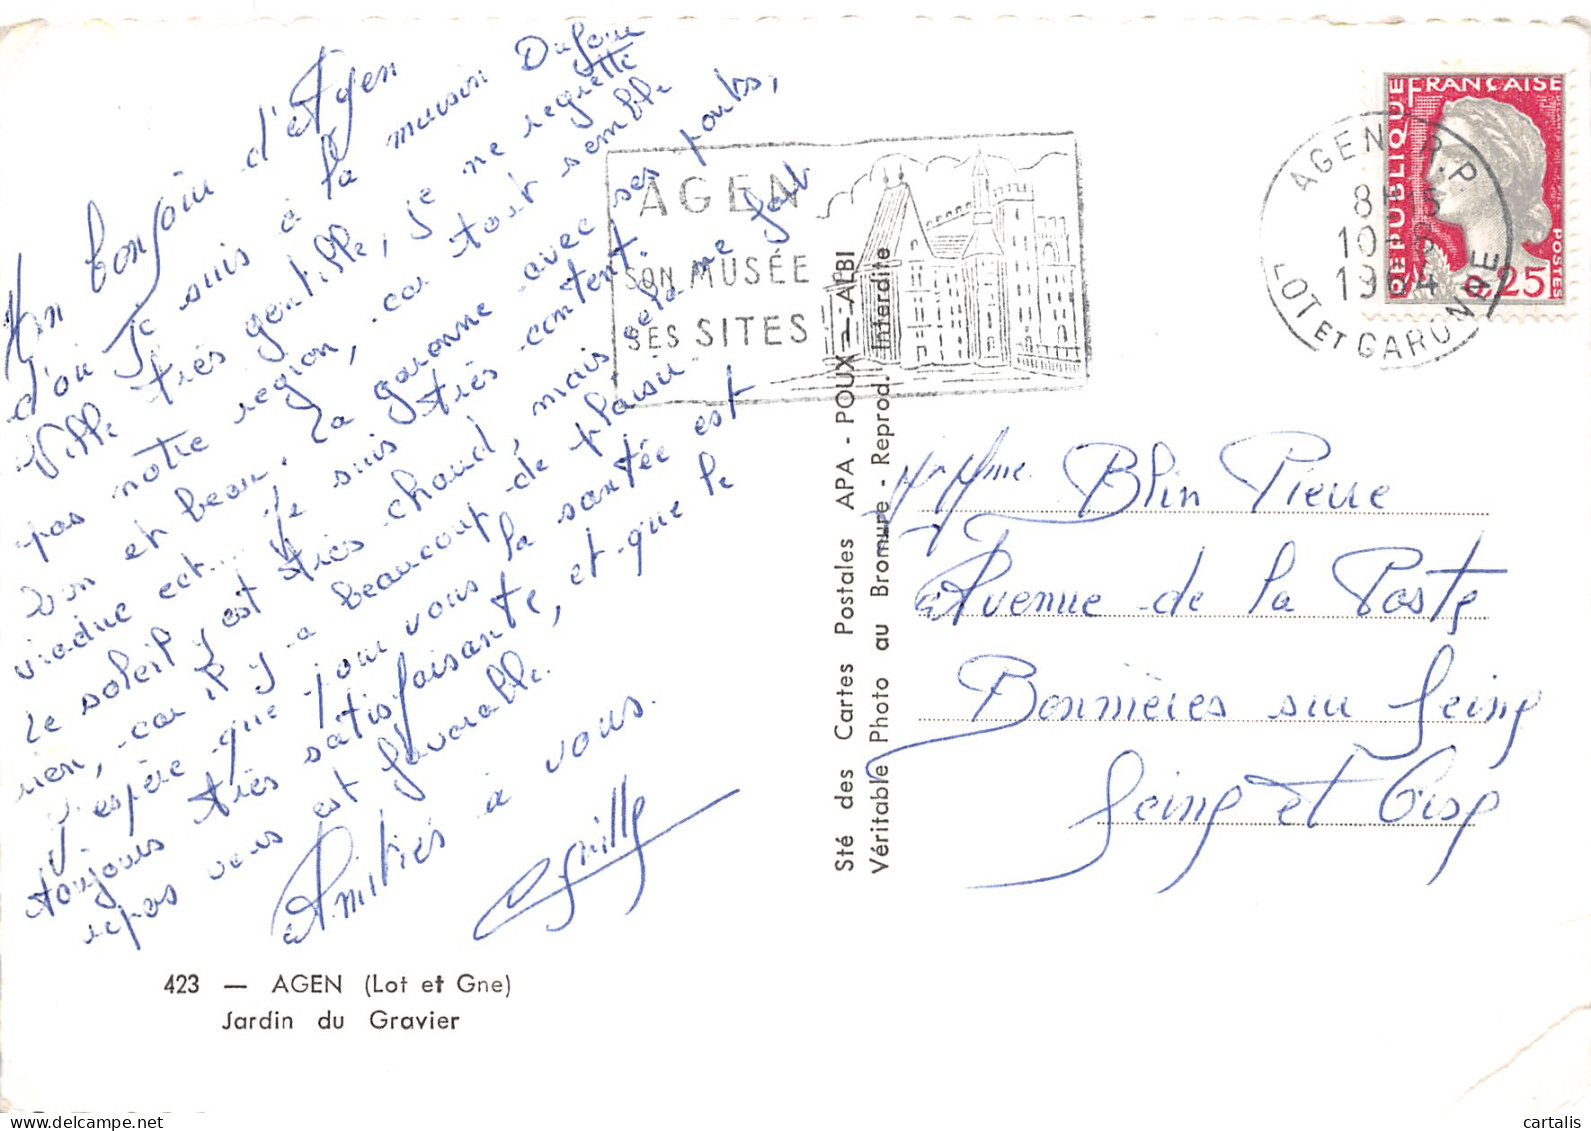 Un bonjour d'Agen
d'où je suis à la maison Dufour
Ville très gentille, je ne regrette
pas notre region, car tout semble
bon et beau. La garonne avec ses ponts,
viaduc ect... Je suis très content.
Le soleil y est très chaud, mais cela ne fait
rien, car il y a beaucoup de plaisir.
J'espère que pour vous la santée est
toujours très satisfaisante, et que le
repos vous est favorable.
Amitiés à vous.
423 — AGEN (Lot et Gne)
Jardin du Gravier
AGEN
SON MUSÉE
SES SITES
Sté des Cartes Postales APA - POUX - ALBI
Véritable Photo au Bromure - Reprod. Interdite
AGEN R.P.
10-8
1964
LOT ET GARONNE
REPUBLIQUE FRANÇAISE
POSTES
0,25
Mr Mme. Blin Pierre
Avenue de la Poste
Bonnières sur Seine
Seine et Oise
cartalis
delcampe.net